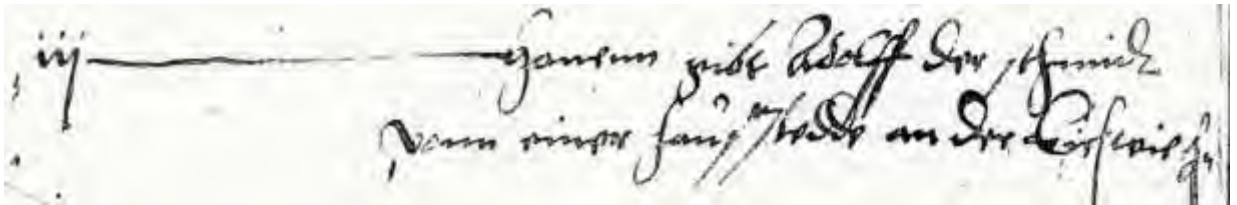 iij hanenn gibt Adolff der schmidt
vonn einer hauß stedde an der